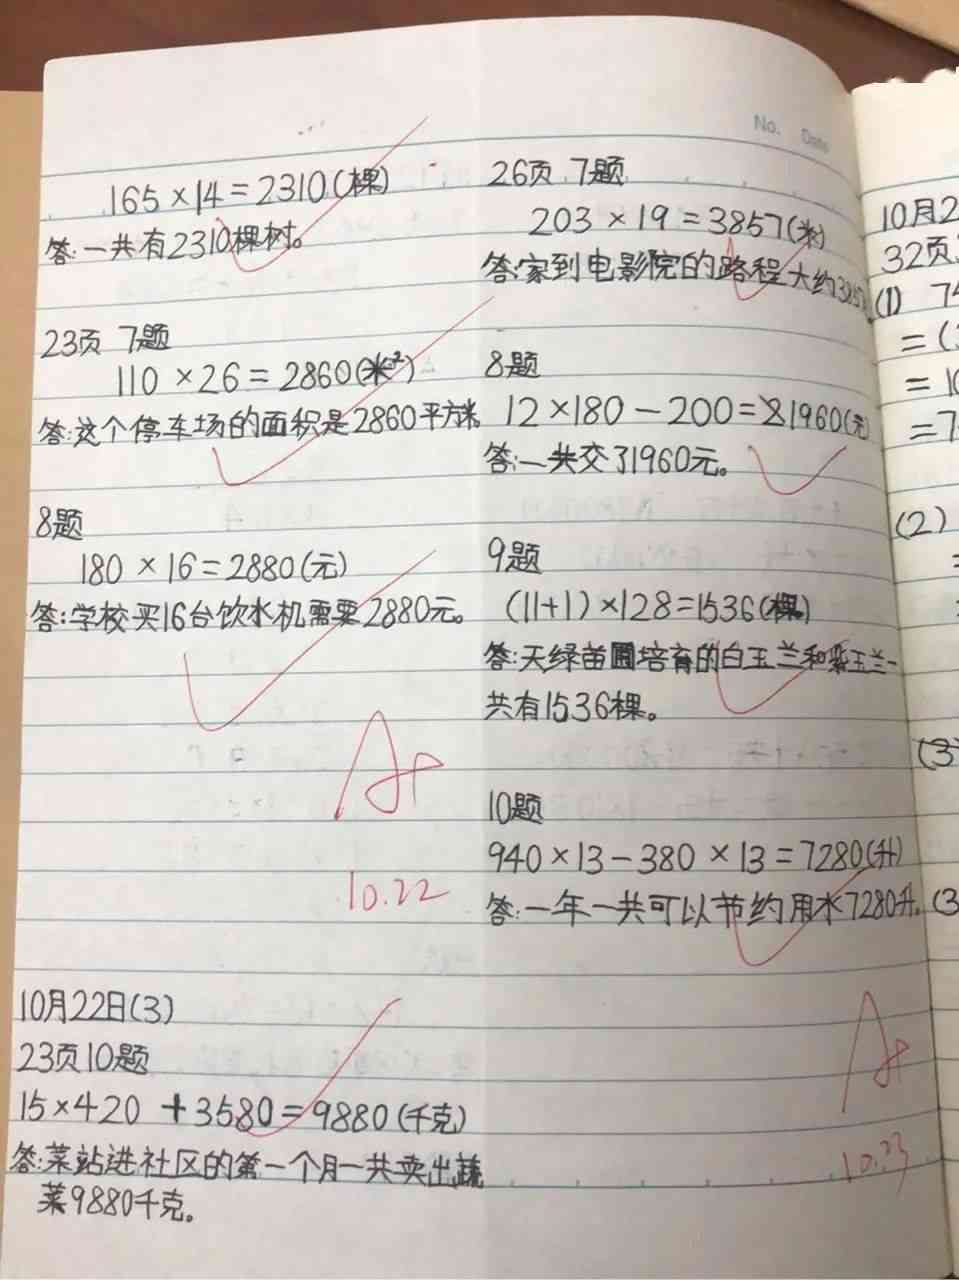 165×14=2310(棵)
答:一共有2310棵树。
23页 7题
110×26=2860(米²)
答:这个停车场的面积是2860平方米
8题
180×16=2880(元)
答:学校买16台饮水机需要2880元。
A+
10.22
10月22日(3)
23页10题
15×420+3580=9880(千克)
答:菜站进社区的第一个月一共卖出蔬
菜9880千克。
No. Date
26页 7题
203×19=3857(米)
答:家到电影院的路程大约3857
8题
12×180-200=1960(元)
答:一共交了1960元。
9题
(11+1)×128=1536(棵)
答:天绿苗圃培育的白玉兰和紫玉兰一
共有1536棵。
10题
940×13-380×13=7280(升)
答:一年一共可以节约用水7280升。
A+
10.23
10月2
32页
(1) 74
=(
=10
=7
(2)
(3)
(3